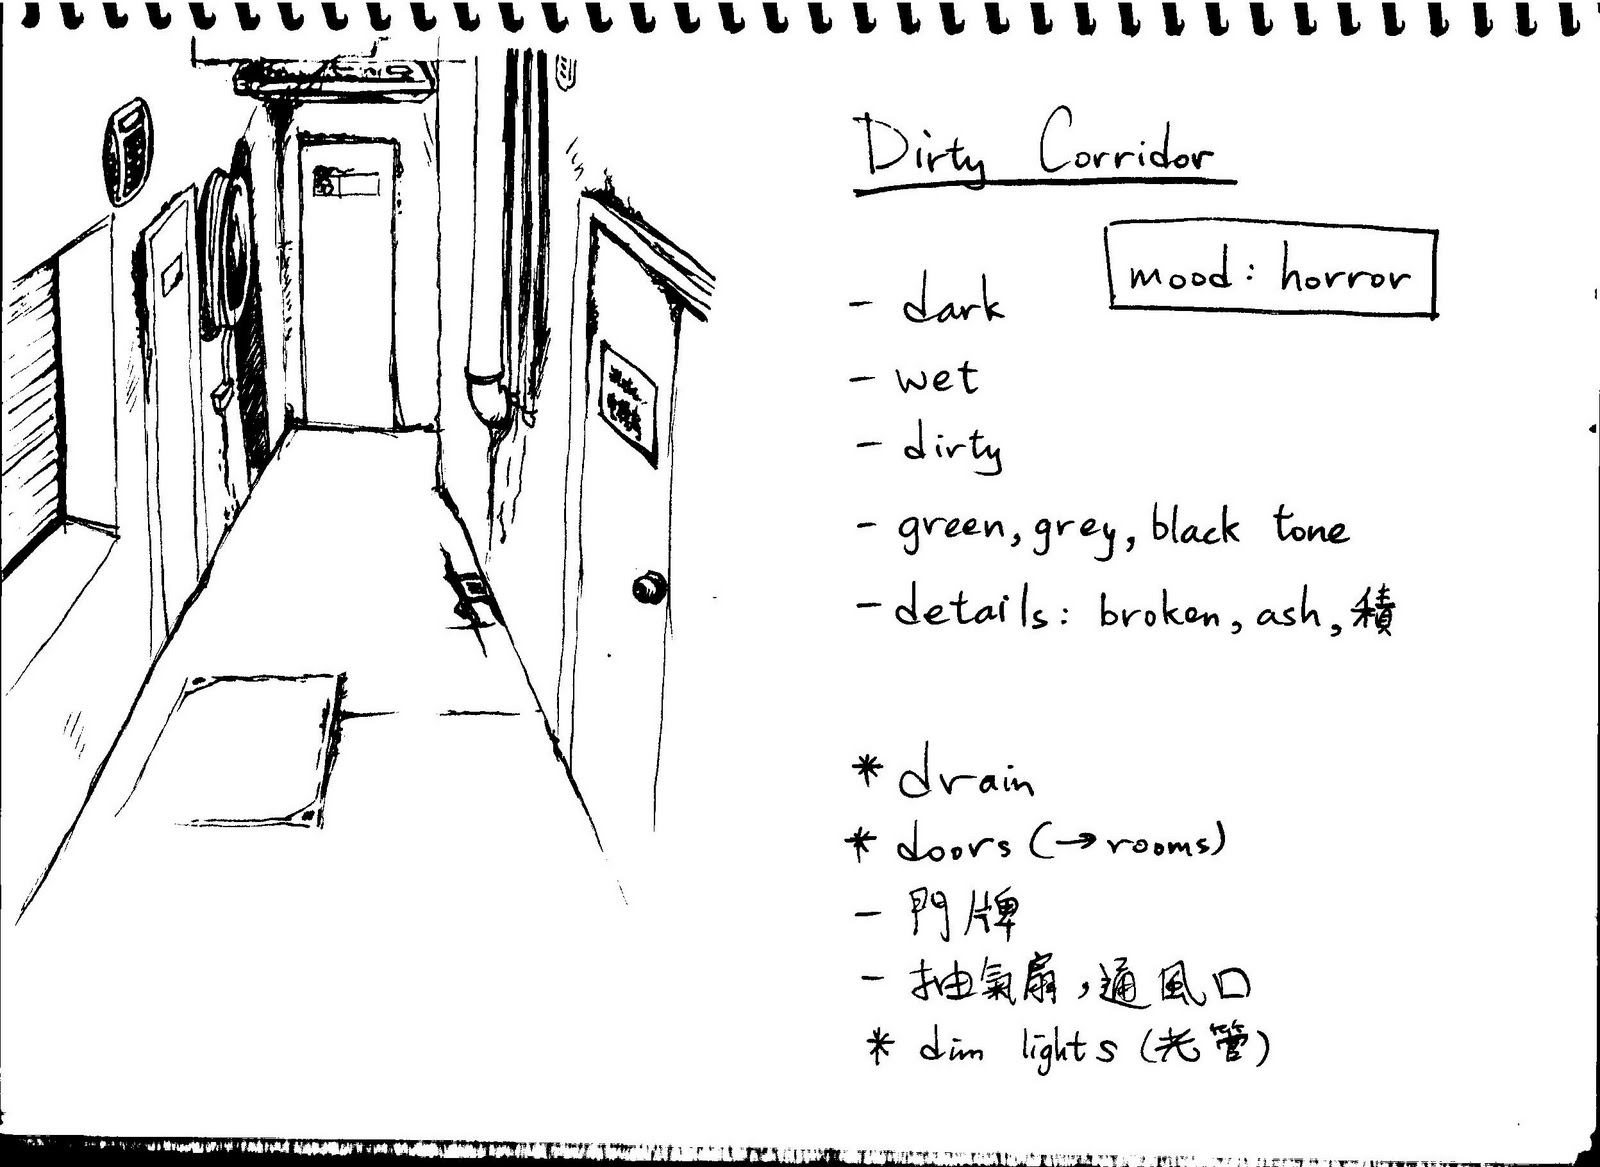 Dirty Corridor
mood: horror
- dark
- wet
- dirty
- green, grey, black tone
- details: broken, ash, 積
* drain
* doors (→rooms)
- 門牌
- 抽氣扇, 通風口
* dim lights (光管)